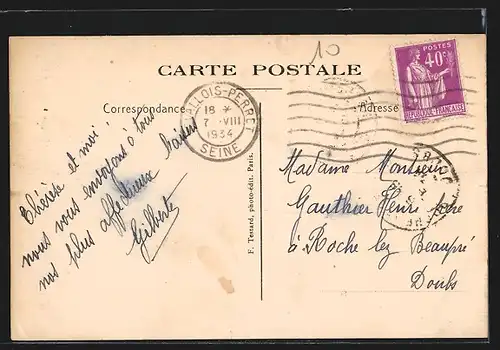 10
CARTE POSTALE
Correspondance
Adresse
LEVALLOIS-PERRET
18 *
7 -VIII
1934
SEINE
POSTES
40c
REPUBLIQUE FRANÇAISE
Thérèse et moi
nous vous envoyons à tous
nos plus affectueux baisers
Gilberte
F. Testard, photo-édit. Paris.
Madame Monsieur
Gauthier Henri
à Roche lez Beaupré
Doubs